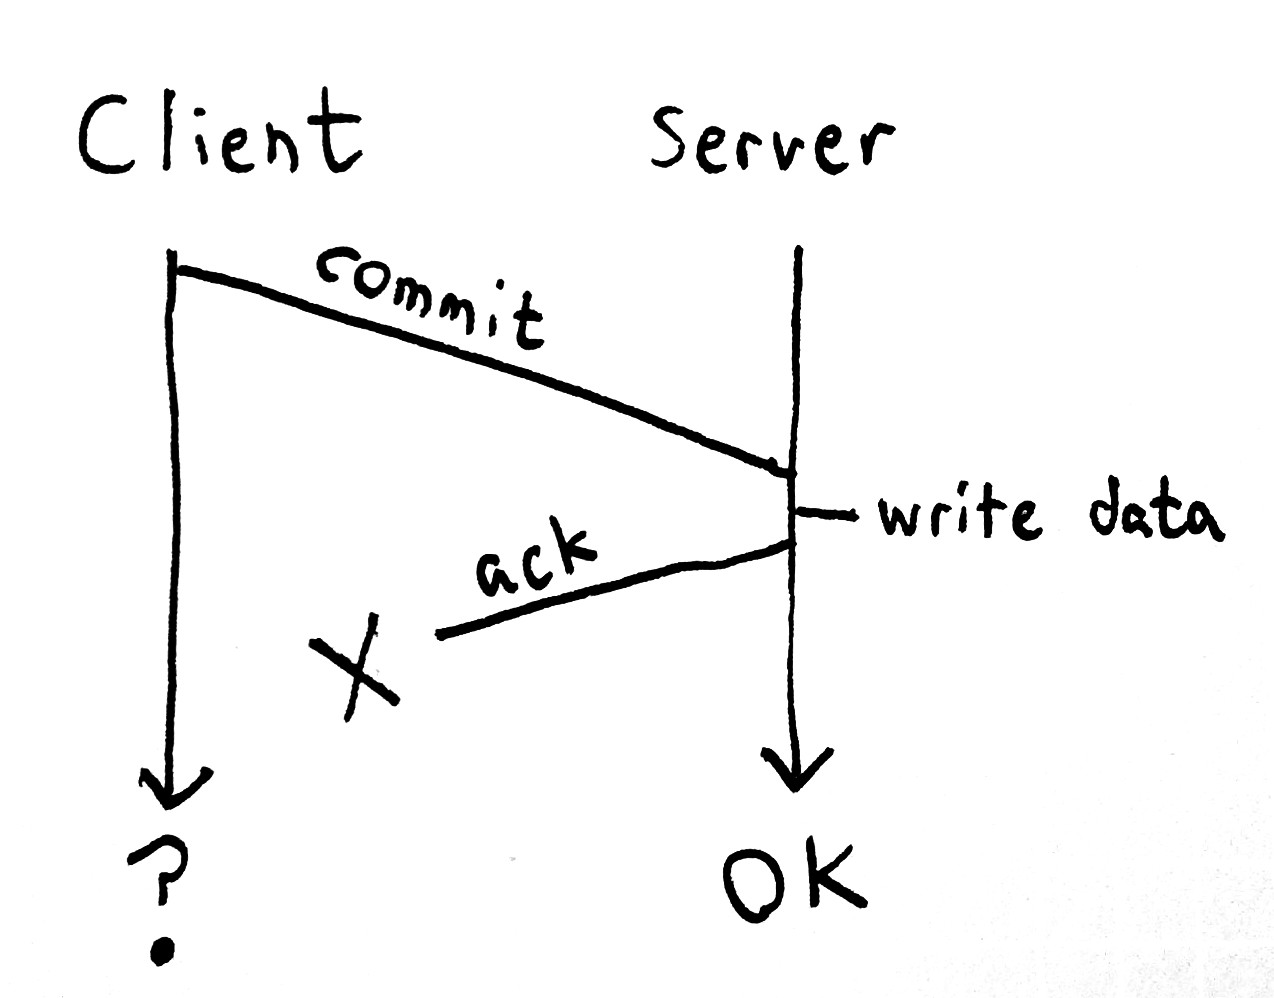 Client
Server
commit
write data
ack
X
?
OK